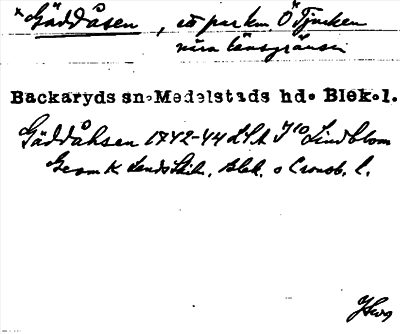 × Gäddåsen, ett par km Ö Tjurken
nära länsgränsen
Backaryds sn. Medelstads hd. Blek. l.
Gäddåhsen 1742-44 LSA J 10 Lindblom
Geom K Lands Skån, Blek. o Cronob. l.